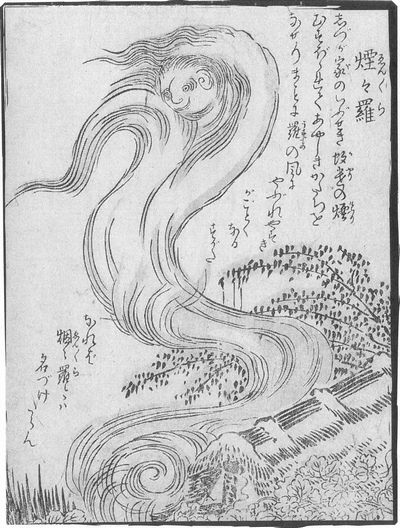 煙々羅
しづが家のいぶせき蚊遣の煙
むすぼゝれてあやしきかたちを
なせりまことに羅の風に
やぶれやすき
がごとく
なる
すがた
なれば
烟々羅とは
名づけ
たらん